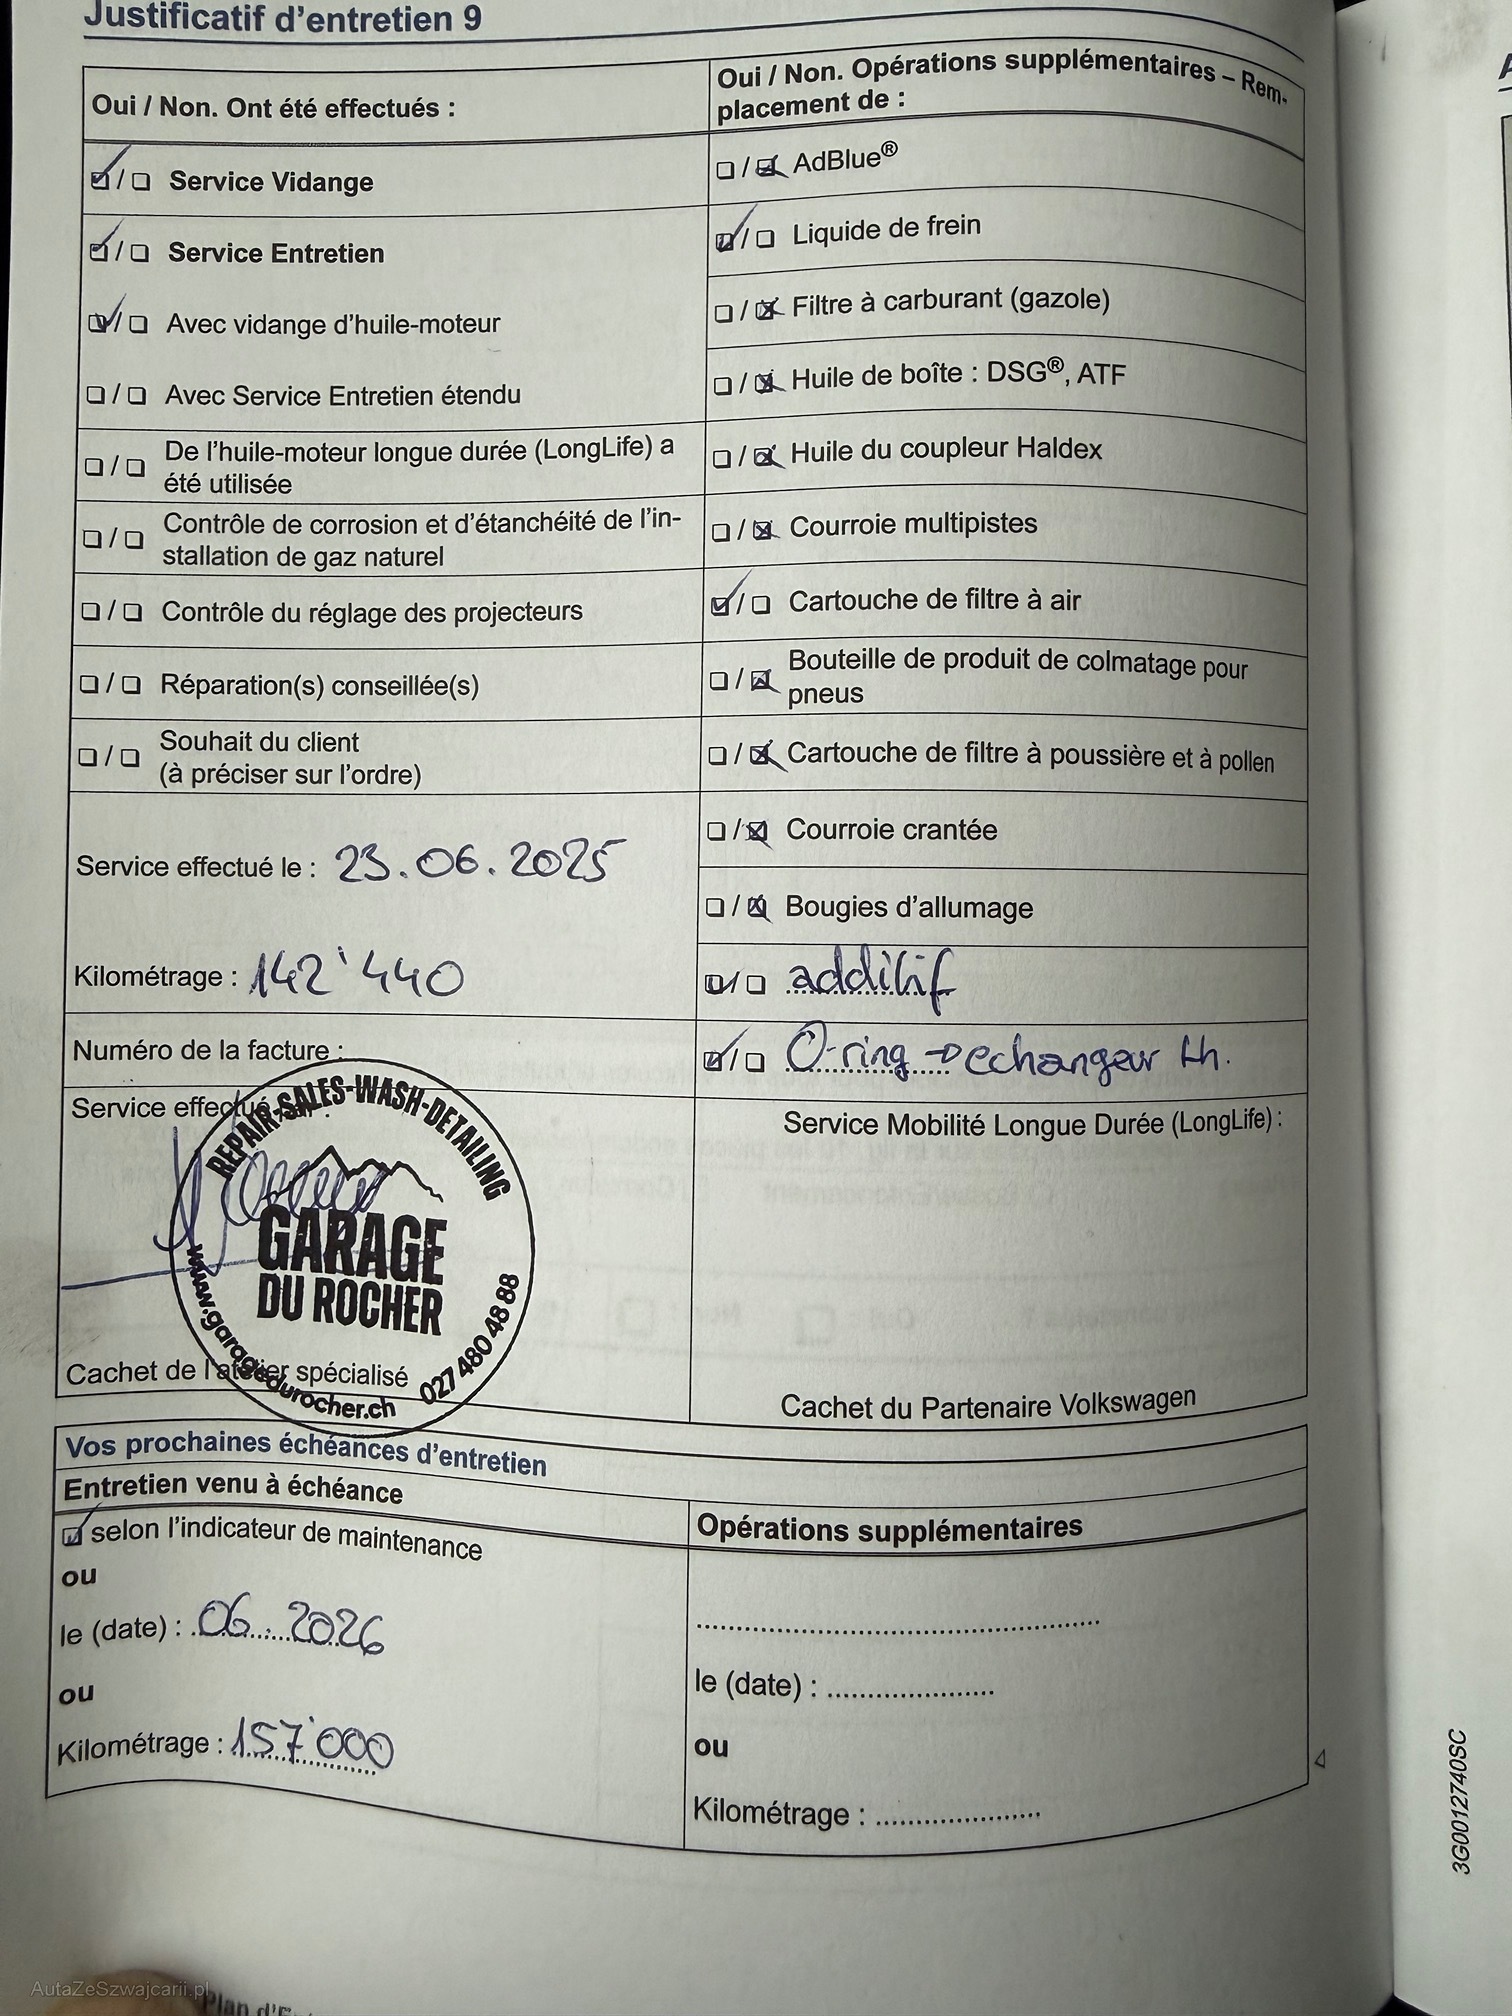 Justificatif d'entretien 9
Oui / Non. Ont été effectués :
☑ / ☐ Service Vidange
☑ / ☐ Service Entretien
☑ / ☐ Avec vidange d'huile-moteur
☐ / ☐ Avec Service Entretien étendu
☐ / ☐ De l'huile-moteur longue durée (LongLife) a
été utilisée
☐ / ☐ Contrôle de corrosion et d'étanchéité de l'in-
stallation de gaz naturel
☐ / ☐ Contrôle du réglage des projecteurs
☐ / ☐ Réparation(s) conseillée(s)
☐ / ☐ Souhait du client
(à préciser sur l'ordre)
Service effectué le : 23.06.2025
Kilométrage : 142'440
Numéro de la facture :
Service effectué par :
REPAIR-SALES-WASH-DETAILING
GARAGE
DU ROCHER
www.garagedurocher.ch
027 480 48 88
Cachet de l'atelier spécialisé
Oui / Non. Opérations supplémentaires – Rem-
placement de :
☐ / ☒ AdBlue®
☑ / ☐ Liquide de frein
☐ / ☒ Filtre à carburant (gazole)
☐ / ☒ Huile de boîte : DSG®, ATF
☐ / ☒ Huile du coupleur Haldex
☐ / ☒ Courroie multipistes
☑ / ☐ Cartouche de filtre à air
☐ / ☒ Bouteille de produit de colmatage pour
pneus
☐ / ☒ Cartouche de filtre à poussière et à pollen
☐ / ☒ Courroie crantée
☐ / ☒ Bougies d'allumage
☑ / ☐ additif
☑ / ☐ O-ring → echangeur th.
Service Mobilité Longue Durée (LongLife) :
Cachet du Partenaire Volkswagen
Vos prochaines échéances d'entretien
Entretien venu à échéance
☑ selon l'indicateur de maintenance
ou
le (date) : 06.2026
ou
Kilométrage : 157'000
Opérations supplémentaires
le (date) :
ou
Kilométrage :
3G0012740SC
AutaZeSzwajcarii.pl